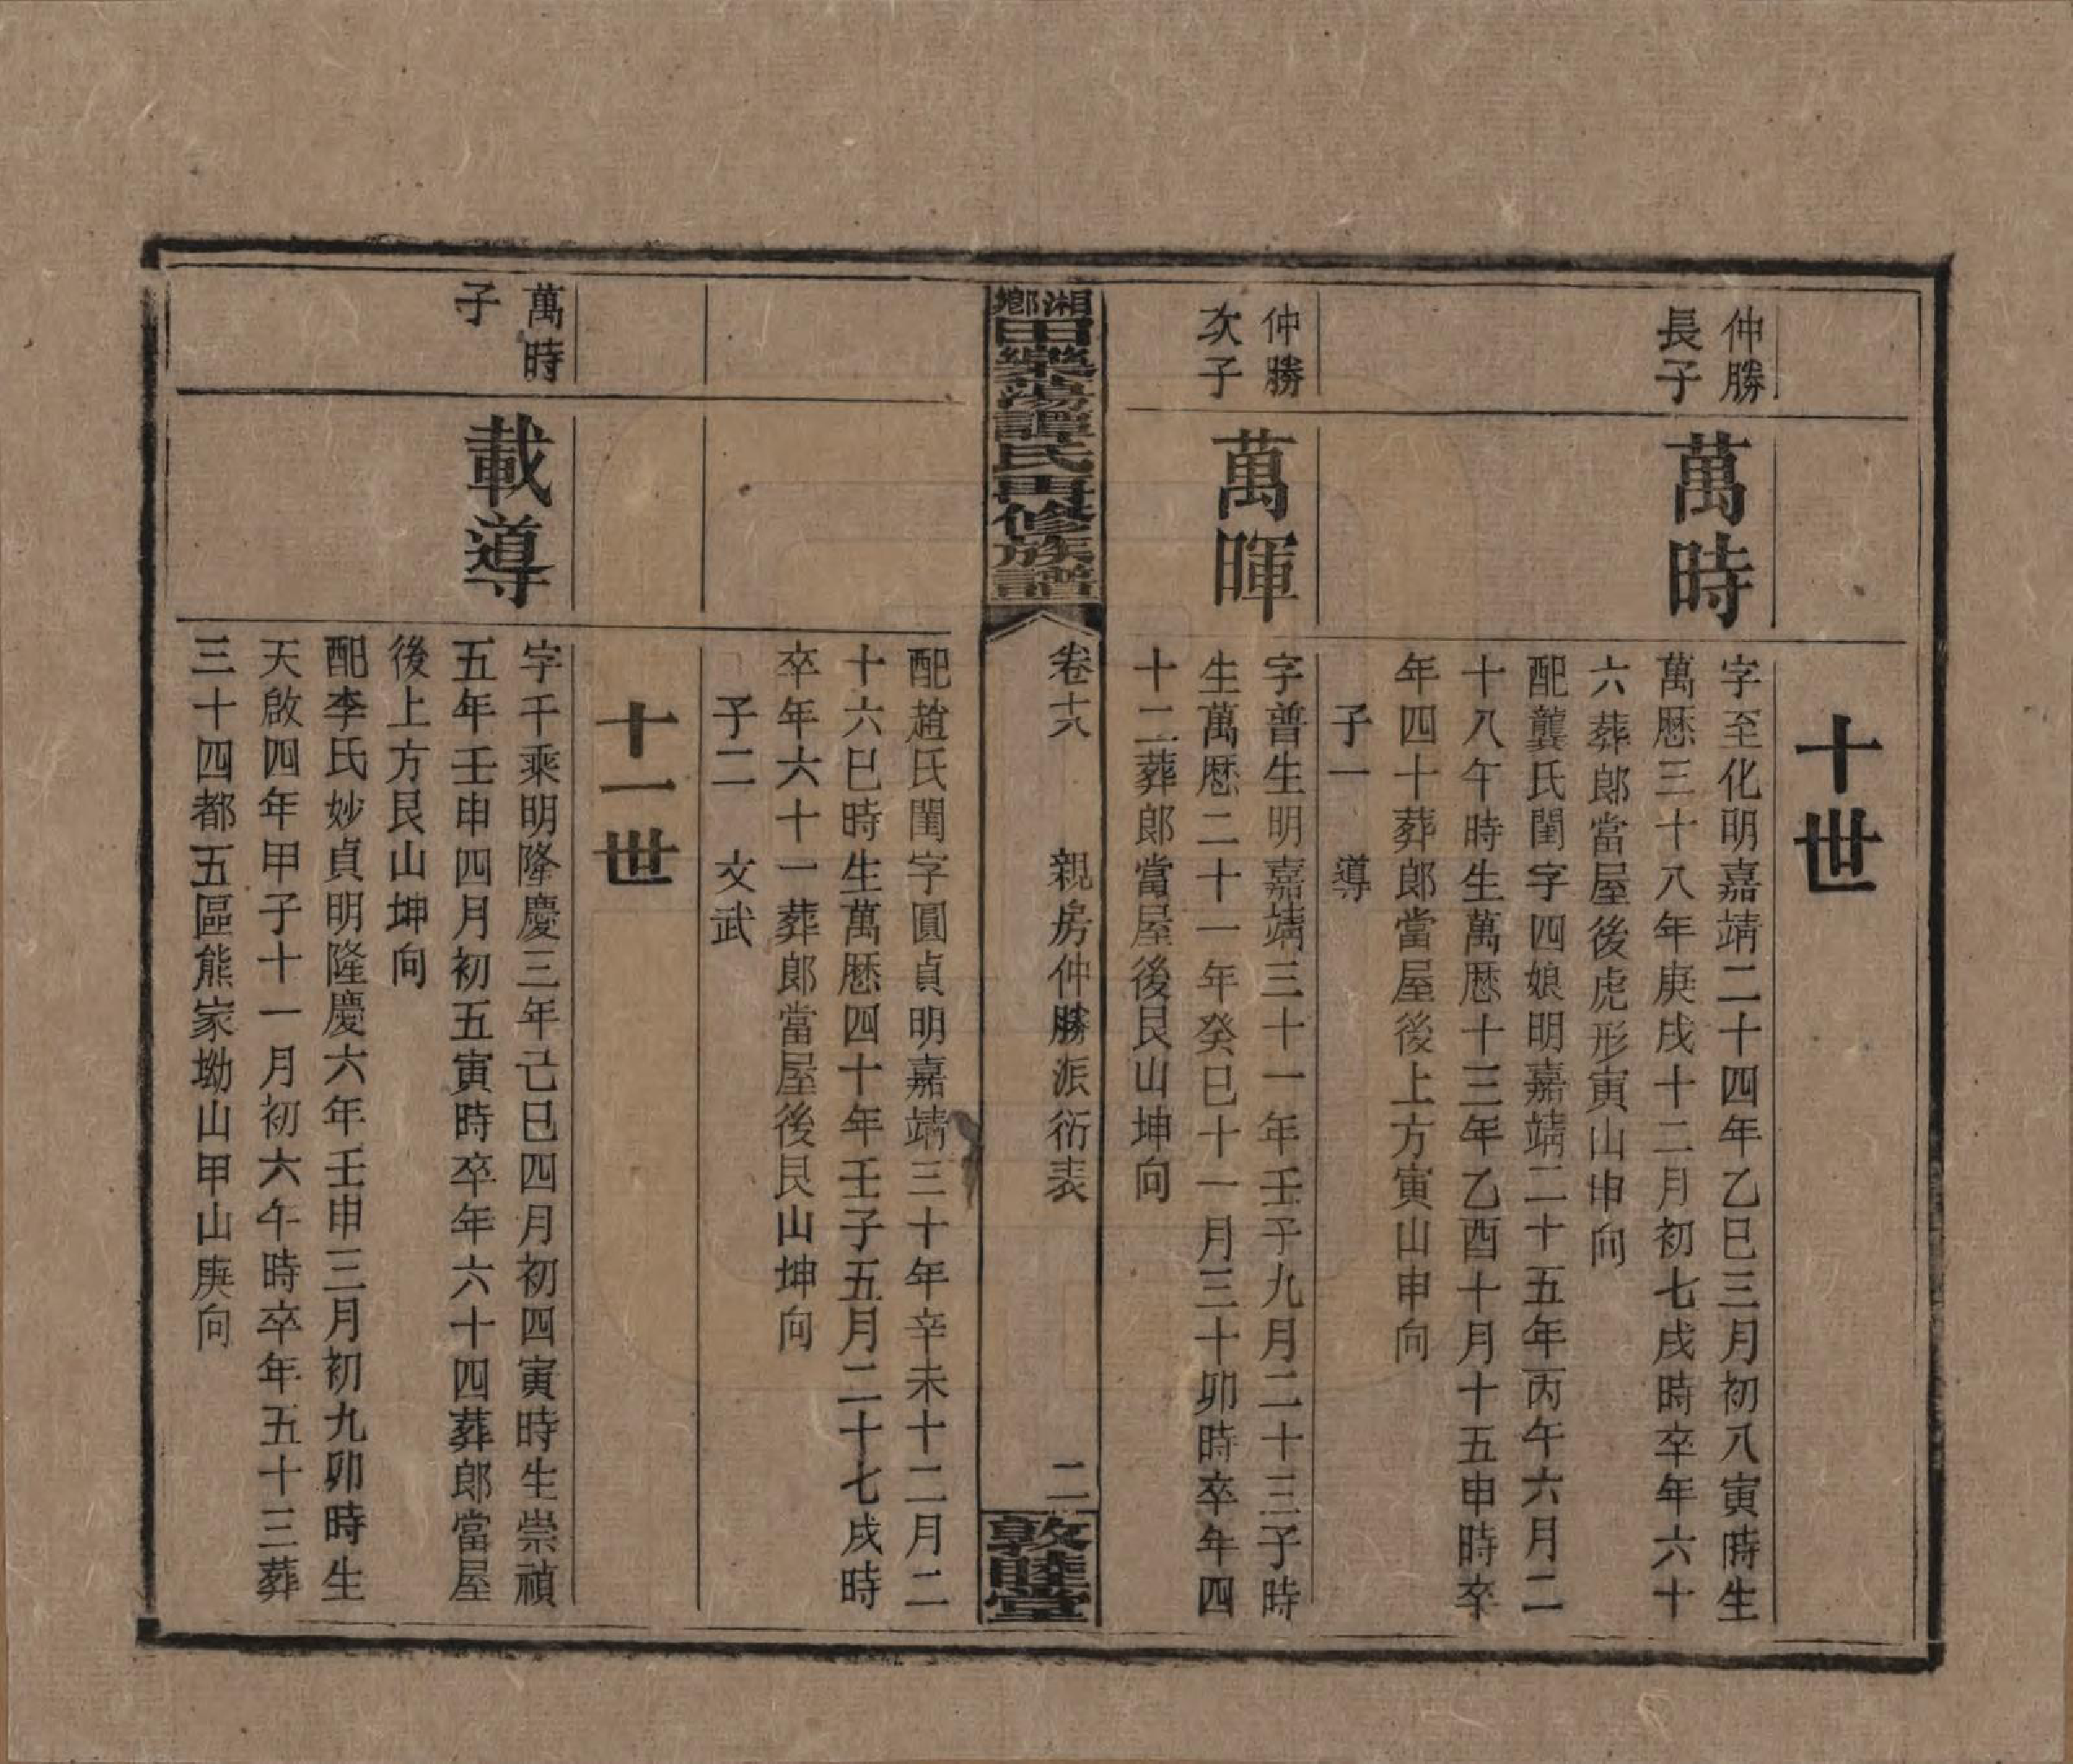 十世
仲勝
長子
萬時
字至化明嘉靖二十四年乙巳三月初八寅時生
萬厯三十八年庚戌十二月初七戌時卒年六十
六葬郎當屋後虎形寅山申向
配龔氏閨字四娘明嘉靖二十五年丙午六月二
十八午時生萬厯十三年乙酉十月十五申時卒
年四十葬郎當屋後上方寅山申向
子一　導
仲勝
次子
萬暉
字普生明嘉靖三十一年壬子九月二十三子時
生萬厯二十一年癸巳十一月三十卯時卒年四
十二葬郎當屋後艮山坤向
湘鄉田樂蕩譚氏再修族譜
卷十八　親房仲勝派衍表　二
敦睦堂
配趙氏閨字圓貞明嘉靖三十年辛未十二月二
十六巳時生萬厯四十年壬子五月二十七戌時
卒年六十一葬郎當屋後艮山坤向
子二　文武
十一世
萬時
子
載導
字千乘明隆慶三年己巳四月初四寅時生崇禎
五年壬申四月初五寅時卒年六十四葬郎當屋
後上方艮山坤向
配李氏妙貞明隆慶六年壬申三月初九卯時生
天啟四年甲子十一月初六午時卒年五十三葬
三十四都五區熊家坳山甲山庚向